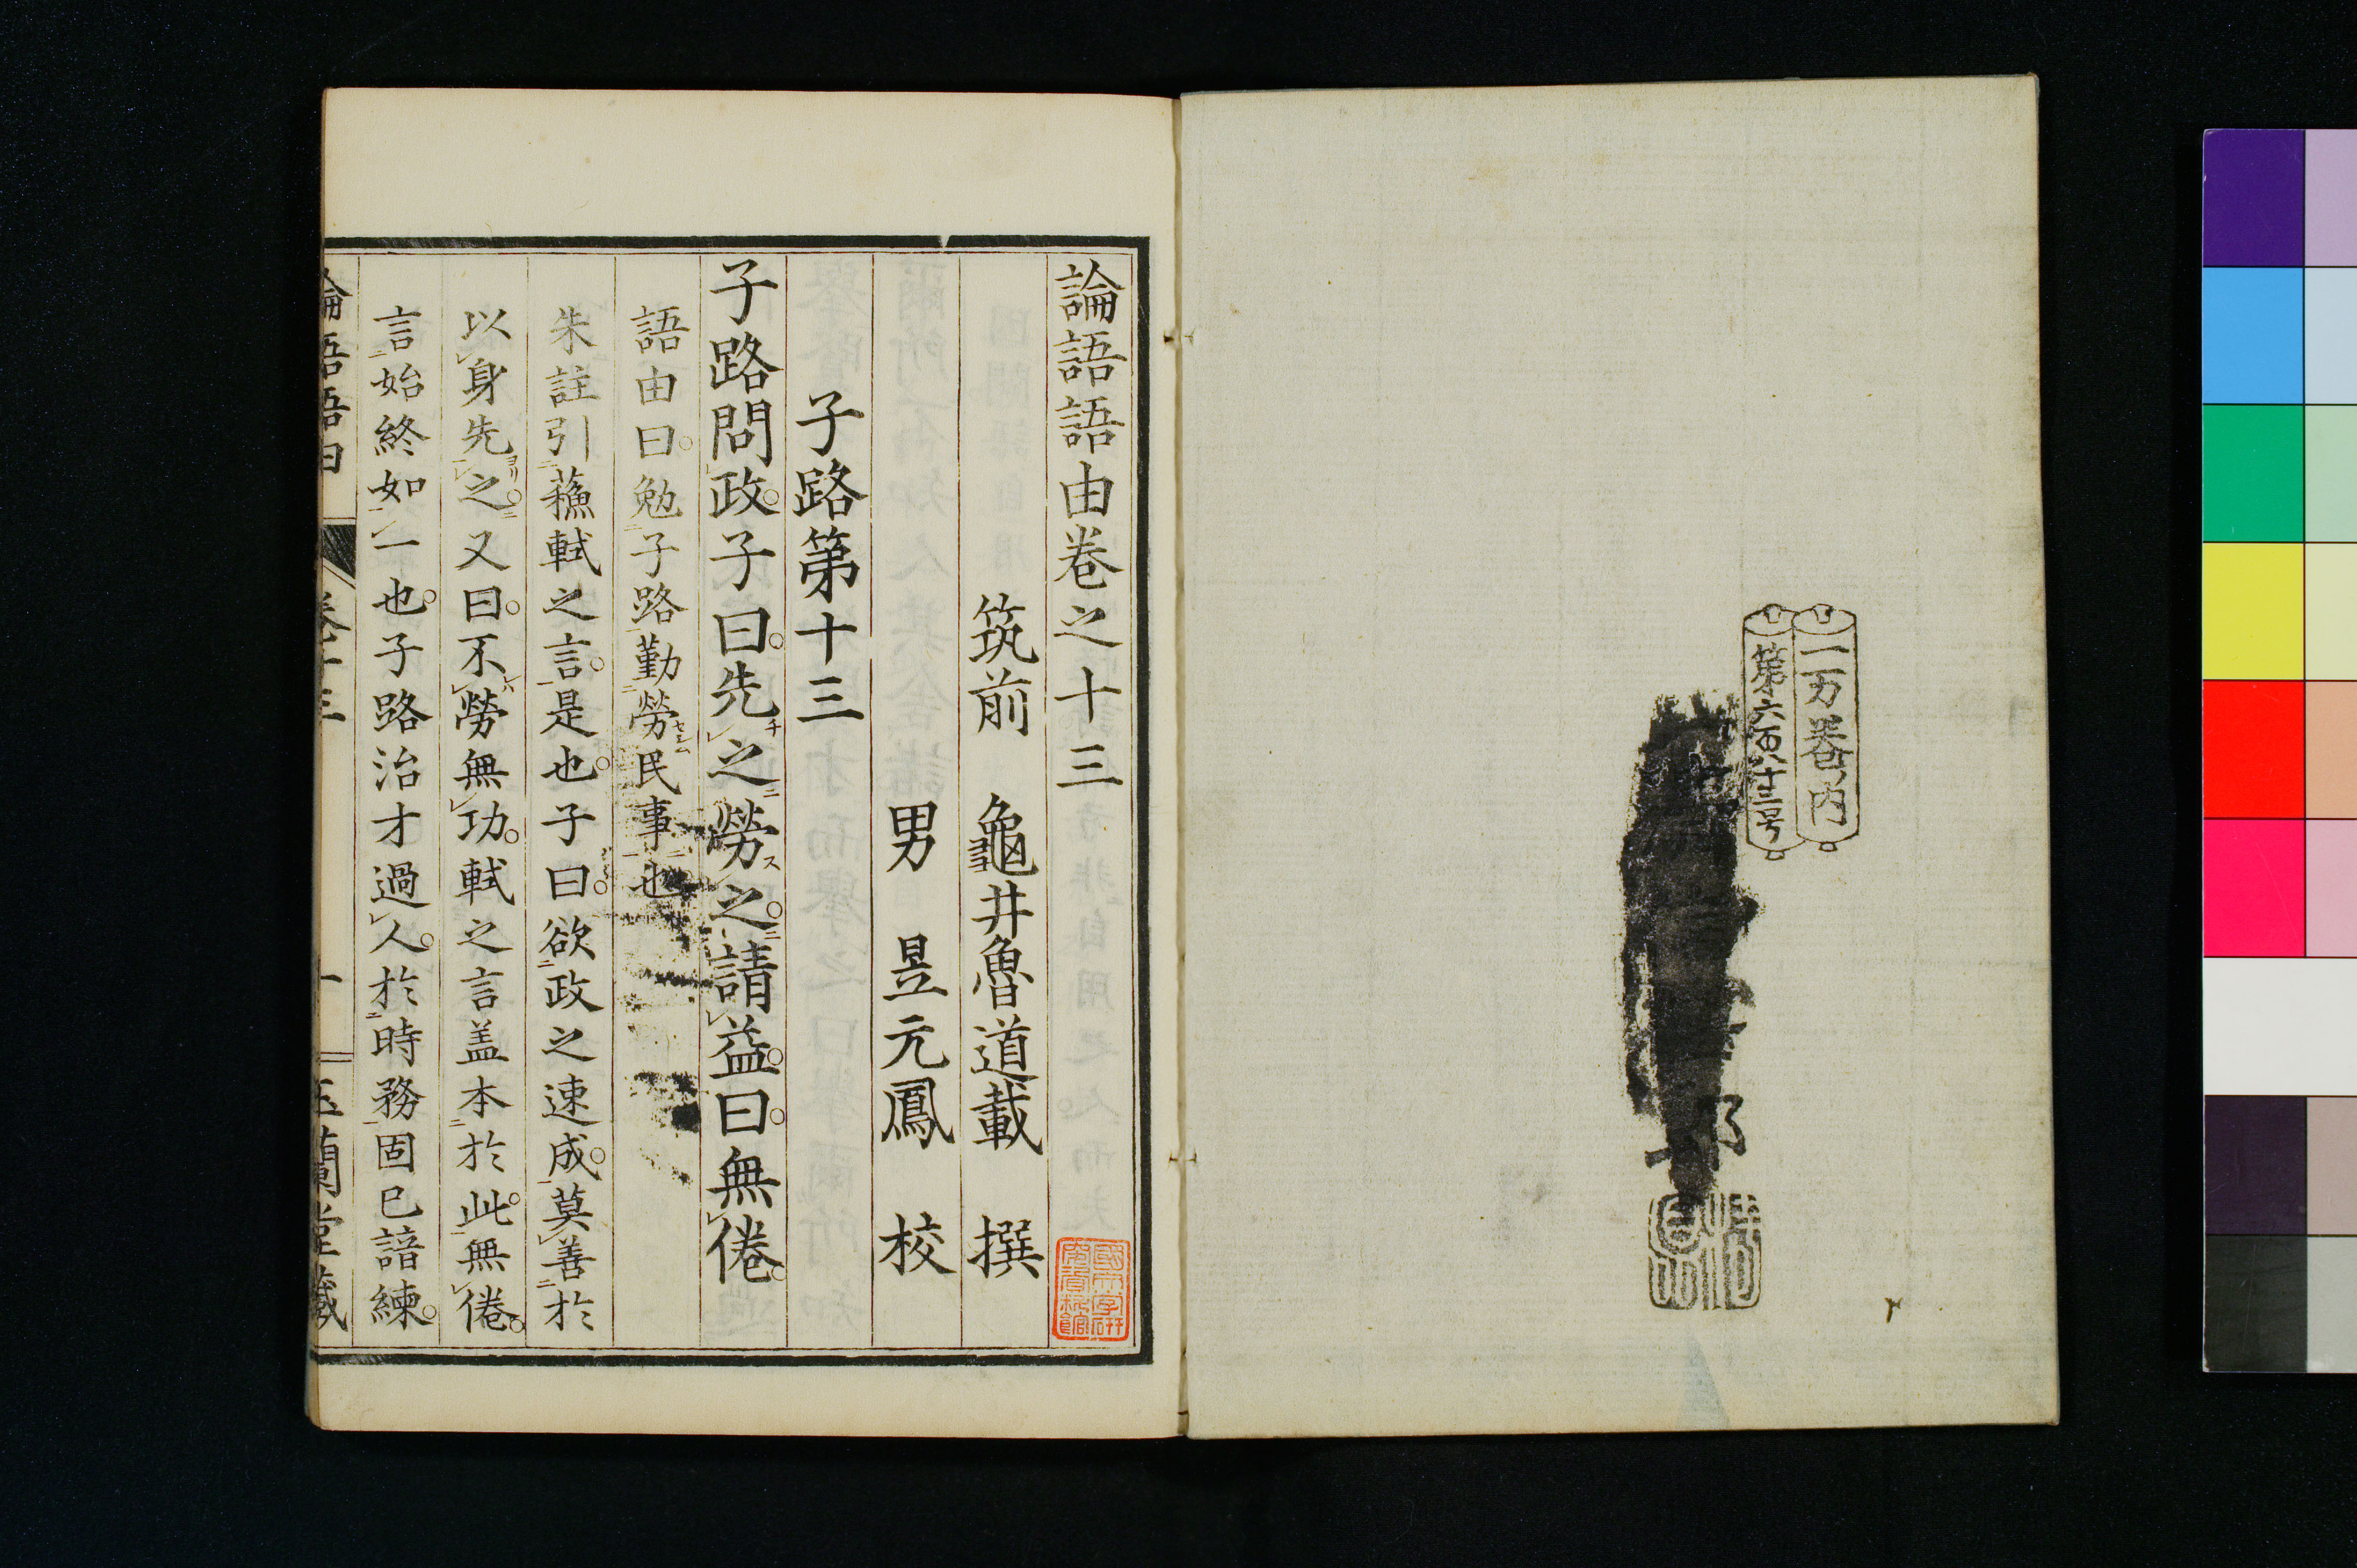 一万巻内
第六百廿三号
論語語由巻之十三
筑前 龜井魯道載 撰
男 昱元鳳 校
子路第十三
子路問政子曰先之勞之請益曰無倦
語由曰勉子路勤勞民事也
朱註引蘓軾之言是也子曰欲政之速成莫善於
以身先之又曰不勞無功軾之言盖本於此無倦
言始終如一也子路治才過人於時務固已諳練
論語語由 卷十三 一 玉蘭堂藏